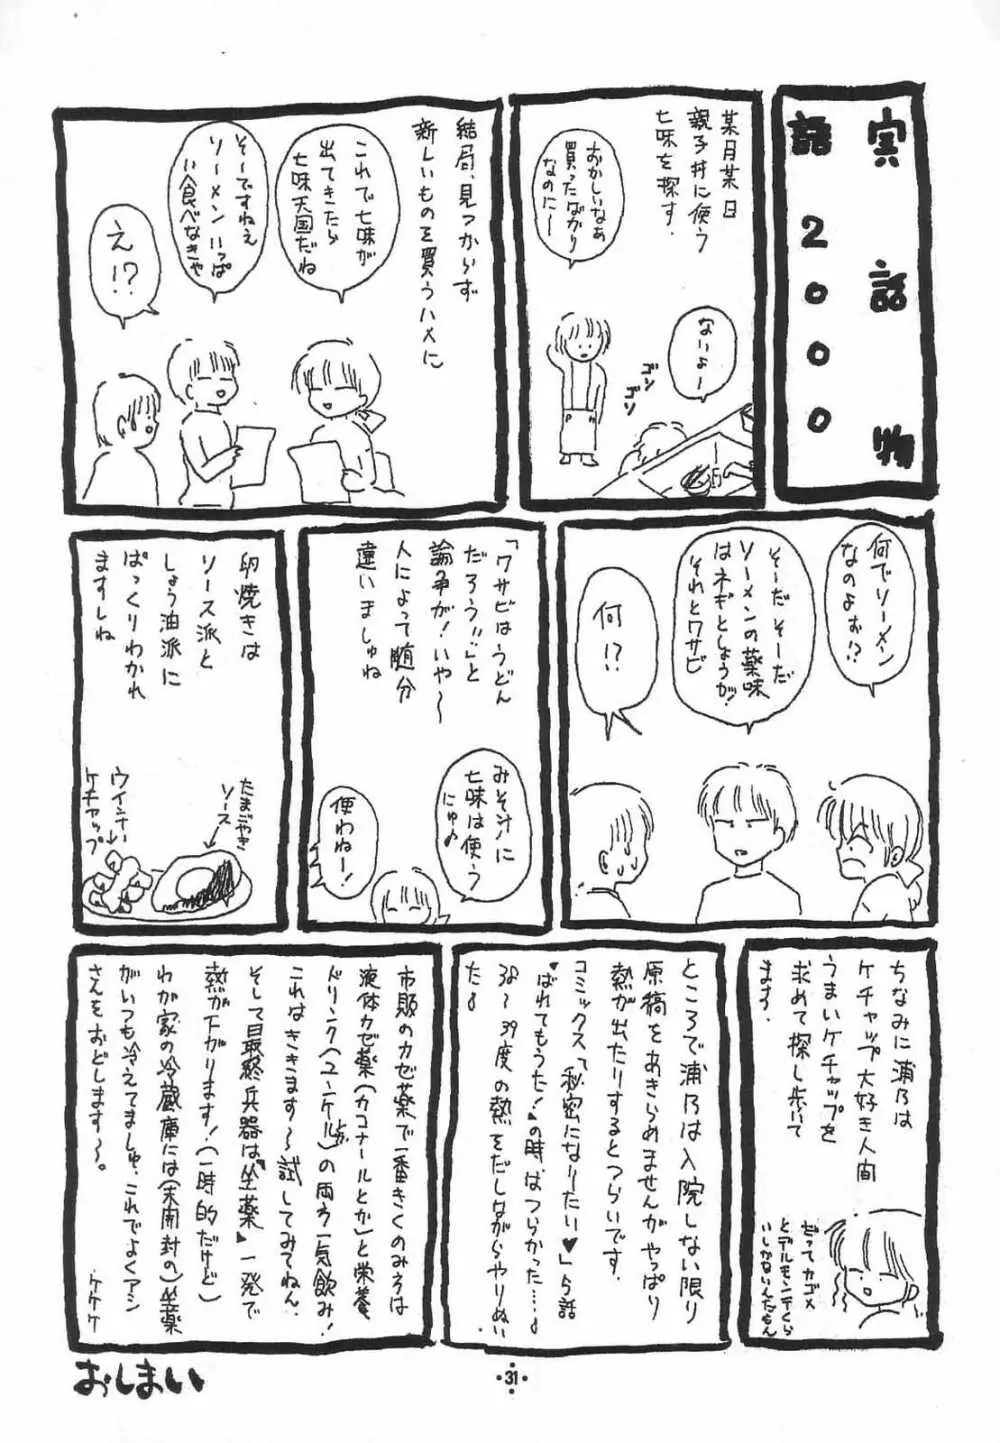 実話物
語2000
某月某日
親子丼に使う
七味を探す.
おかしいなぁ
買ったばかり
なのに〜
ないよー
ゴン
ゴソ
結局、見つからず
新しいものを買うハメに
これで七味が
出てきたら
七味天国だね
そーですねぇ
ソーメンいっぱ
い食べなきゃ
え!?
何でソーメン
なのよぉ!?
そーだそーだ
ソーメンの薬味
はネギとしょうが!
それとワサビ
何!?
「ワサビはうどん
だろう!!」と
論争が!いや〜
人によって随分
違いましゅね
みそ汁に
七味は使う
にゅ♪
使わねー!
卵焼きは
ソース派と
しょう油派に
ぱっくりわかれ
ますしね
たまごやき
ソース
ウインナー
ケチャップ
ちなみに浦乃は
ケチャップ大好き人間
うまいケチャップを
求めて探し歩いて
ます.
だってカゴメ
とデルモンテくら
いしかないんだもん
ところで浦乃は入院しない限り
原稿をあきらめませんがやっぱり
熱が出たりするとつらいです.
コミックス「秘密になりたい♥」ら話
♥ばれてもうた!♥の時はつらかった…♪
38〜39度の熱をだしながらやりぬい
た♪
市販のカゼ薬で一番きくのみろは
液体カゼ薬(カコナールとか)と栄養
ドリンク(ユンケルとか)の両方一気飲み!
これはききます〜試してみてねん.
そして最終兵器は♥坐薬♥一発で
熱が下がります!(一時的だけど)
わが家の冷蔵庫には(未開封の)坐薬
がいつも冷えてましゅ.これでよくアシ
さんをおどします〜。
ケケケ
おしまい
・31・